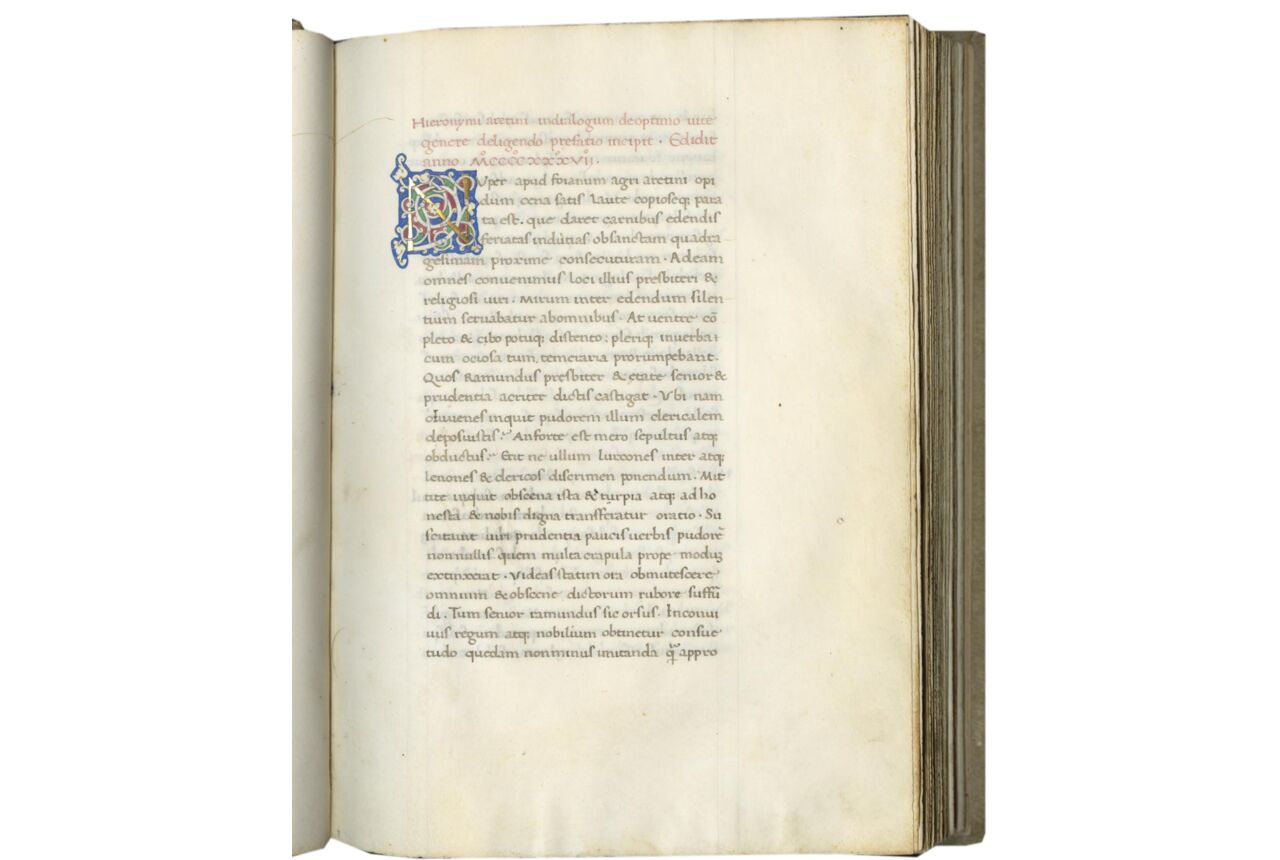 Hieronymi aretini in dialogum de optimo uite
genere deligendo prefatio incipit · Edidit
anno · MͦCCCCͦXXͦXͦVIIͦ ·
NVper apud foianum agri aretini opi
dum cena satis laute copioseq; para
ta est · que daret carnibus edendis
feriatas indutias ob sanctam quadra
gesimam proxime consecuturam · Ad eam
omnes conuenimus loci illius presbiteri &
religiosi uiri · Mirum inter edendum silen
tium seruabatur ab omnibus · At uentre cō
pleto & cibo potuq; distento : pleriq; in uerba
cum ociosa tum temeraria prorumpebant ·
Quos Ramundus presbiter & etate senior &
prudentia acriter dictis castigat · Vbi nam
o iuuenes inquit pudorem illum clericalem
deposuistis? An forte est mero sepultus atq;
obductus? Erit ne ullum lurcones inter atq;
lenones & clericos discrimen ponendum · Mit
tite inquit obscena ista & turpia atq; ad ho
nesta & nobis digna transferatur oratio · Su
scitauit uiri prudentia paucis uerbis pudorē
non nullis quem multa crapula prope moduȝ
extinxerat · Videas statim ora obmutescere
omnium & obscene dictorum rubore suffū
di · Tum senior ramundus sic orsus · In conui
uiis regum atq; nobilium obtinetur consue
tudo quedam non minus imitanda q̄ appro